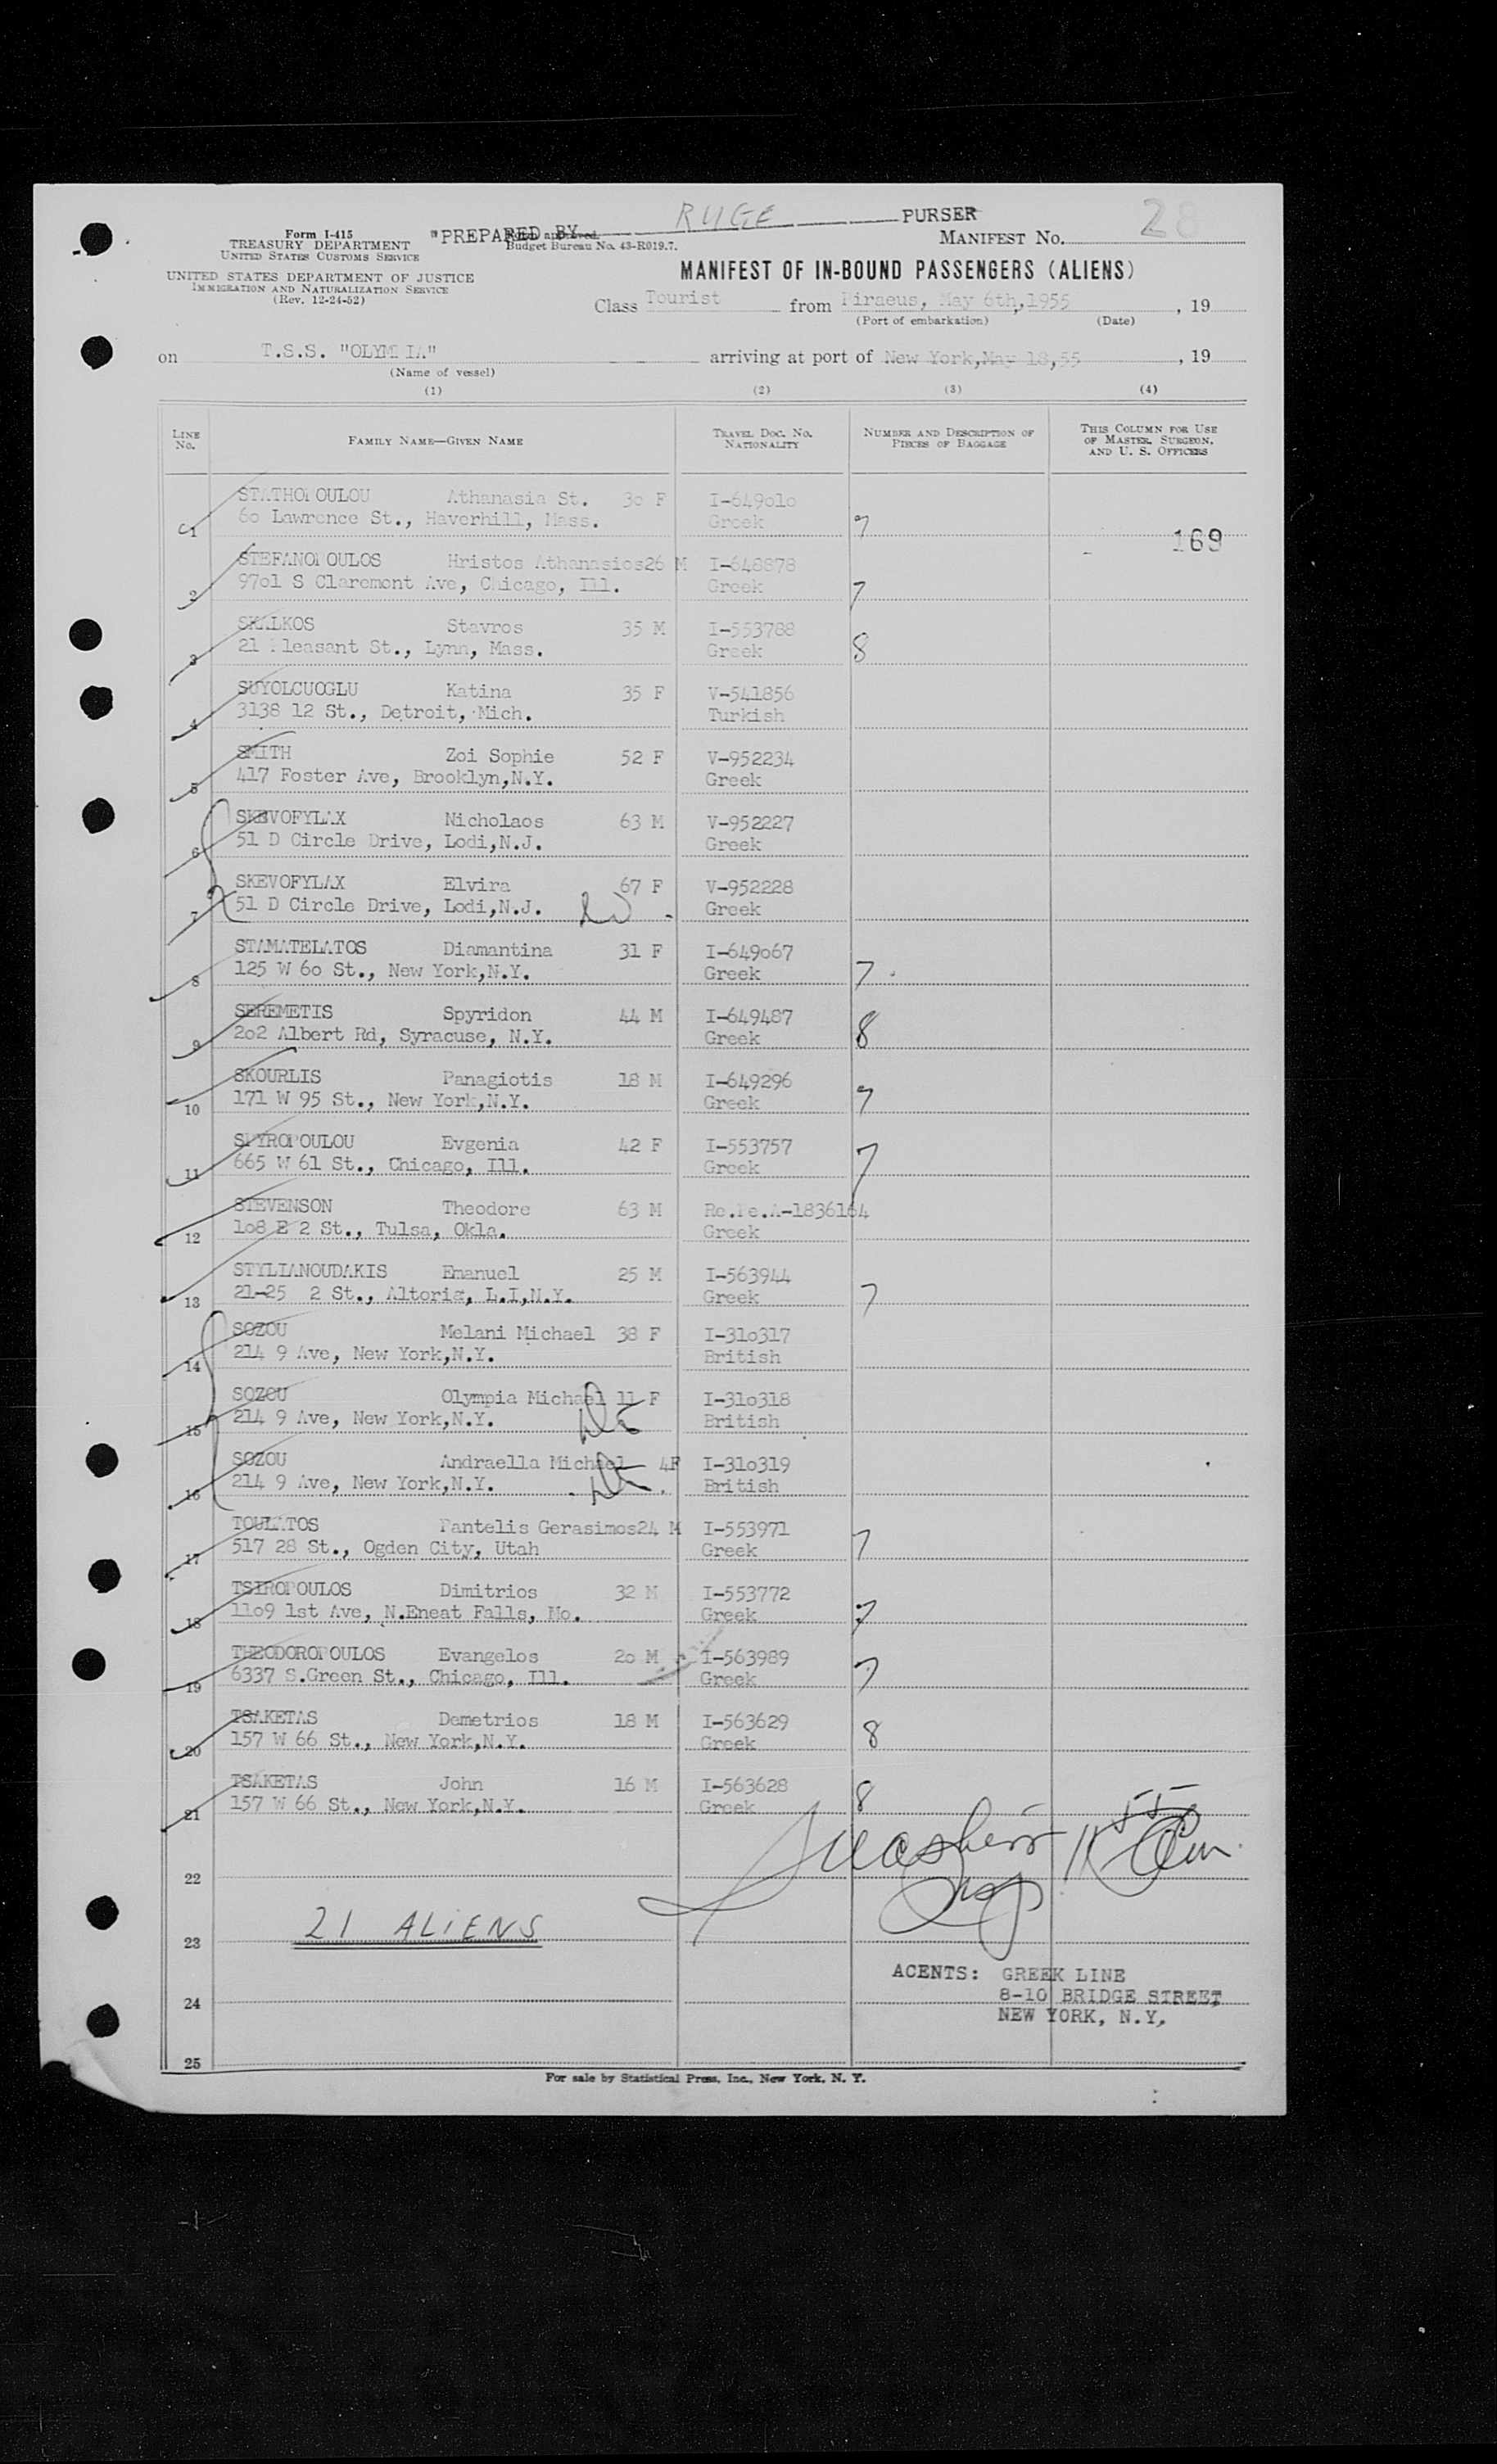 RUGE PURSER
Form I-415
TREASURY DEPARTMENT
UNITED STATES CUSTOMS SERVICE
UNITED STATES DEPARTMENT OF JUSTICE
IMMIGRATION AND NATURALIZATION SERVICE
(Rev. 12-24-52)
"PREPARED BY
Form approved.
Budget Bureau No. 43-R019.7.
MANIFEST NO. 28
MANIFEST OF IN-BOUND PASSENGERS (ALIENS)
Class Tourist from Piraeus, May 6th,1955, 19
(Port of embarkation) (Date)
on T.S.S. "OLYMPIA" arriving at port of New York,May 18,55, 19
(Name of vessel)
(1) (2) (3) (4)
LINE NO. FAMILY NAME—GIVEN NAME TRAVEL DOC. NO. NATIONALITY NUMBER AND DESCRIPTION OF PIECES OF BAGGAGE THIS COLUMN FOR USE OF MASTER, SURGEON, AND U. S. OFFICERS
STATHOPOULOU Athanasia St. 3o F I-649o1o
1 6o Lawrence St., Haverhill, Mass. Greek 7
169
STEFANOPOULOS Hristos Athanasios26 M I-648878
2 97o1 S Claremont Ave, Chicago, Ill. Greek 7
SKALKOS Stavros 35 M I-553788
3 21 Pleasant St., Lynn, Mass. Greek 8
SUYOLCUOGLU Katina 35 F V-541856
4 3138 12 St., Detroit, Mich. Turkish
SMITH Zoi Sophie 52 F V-952234
5 417 Foster Ave, Brooklyn,N.Y. Greek
SKEVOFYLAX Nicholaos 63 M V-952227
6 51 D Circle Drive, Lodi,N.J. Greek
SKEVOFYLAX Elvira 67 F V-952228
7 51 D Circle Drive, Lodi,N.J. Greek
STAMATELATOS Diamantina 31 F I-649o67
8 125 W 6o St., New York,N.Y. Greek 7
SEREMETIS Spyridon 44 M I-649487
9 2o2 Albert Rd, Syracuse, N.Y. Greek 8
SKOURLIS Panagiotis 18 M I-649296
10 171 W 95 St., New York,N.Y. Greek 7
SPYROPOULOU Evgenia 42 F I-553757
11 665 W 61 St., Chicago, Ill. Greek 7
STEVENSON Theodore 63 M Re.Pe.A-1836164
12 1o8 E 2 St., Tulsa, Okla. Greek
STYLIANOUDAKIS Emanuel 25 M I-563944
13 21-25 2 St., Altoria, L.I,N.Y. Greek 7
SOZOU Melani Michael 38 F I-31o317
14 214 9 Ave, New York,N.Y. British
SOZOU Olympia Michael 11 F I-31o318
15 214 9 Ave, New York,N.Y. British
SOZOU Andraella Michael 4F I-31o319
16 214 9 Ave, New York,N.Y. British
TOULATOS Pantelis Gerasimos24 M I-553971
17 517 28 St., Ogden City, Utah Greek 7
TSIROPOULOS Dimitrios 32 M I-553772
18 11o9 1st Ave, N.Eneat Falls, Mo. Greek 7
THEODOROPOULOS Evangelos 2o M I-563989
19 6337 S.Green St., Chicago, Ill. Greek 7
TSAKETAS Demetrios 18 M I-563629
20 157 W 66 St., New York,N.Y. Greek 8
TSAKETAS John 16 M I-563628
21 157 W 66 St., New York,N.Y. Greek 8
22
23 21 ALIENS
ACENTS: GREEK LINE
24 8-10 BRIDGE STREET
NEW YORK, N.Y,
25
For sale by Statistical Press, Inc., New York, N. Y.